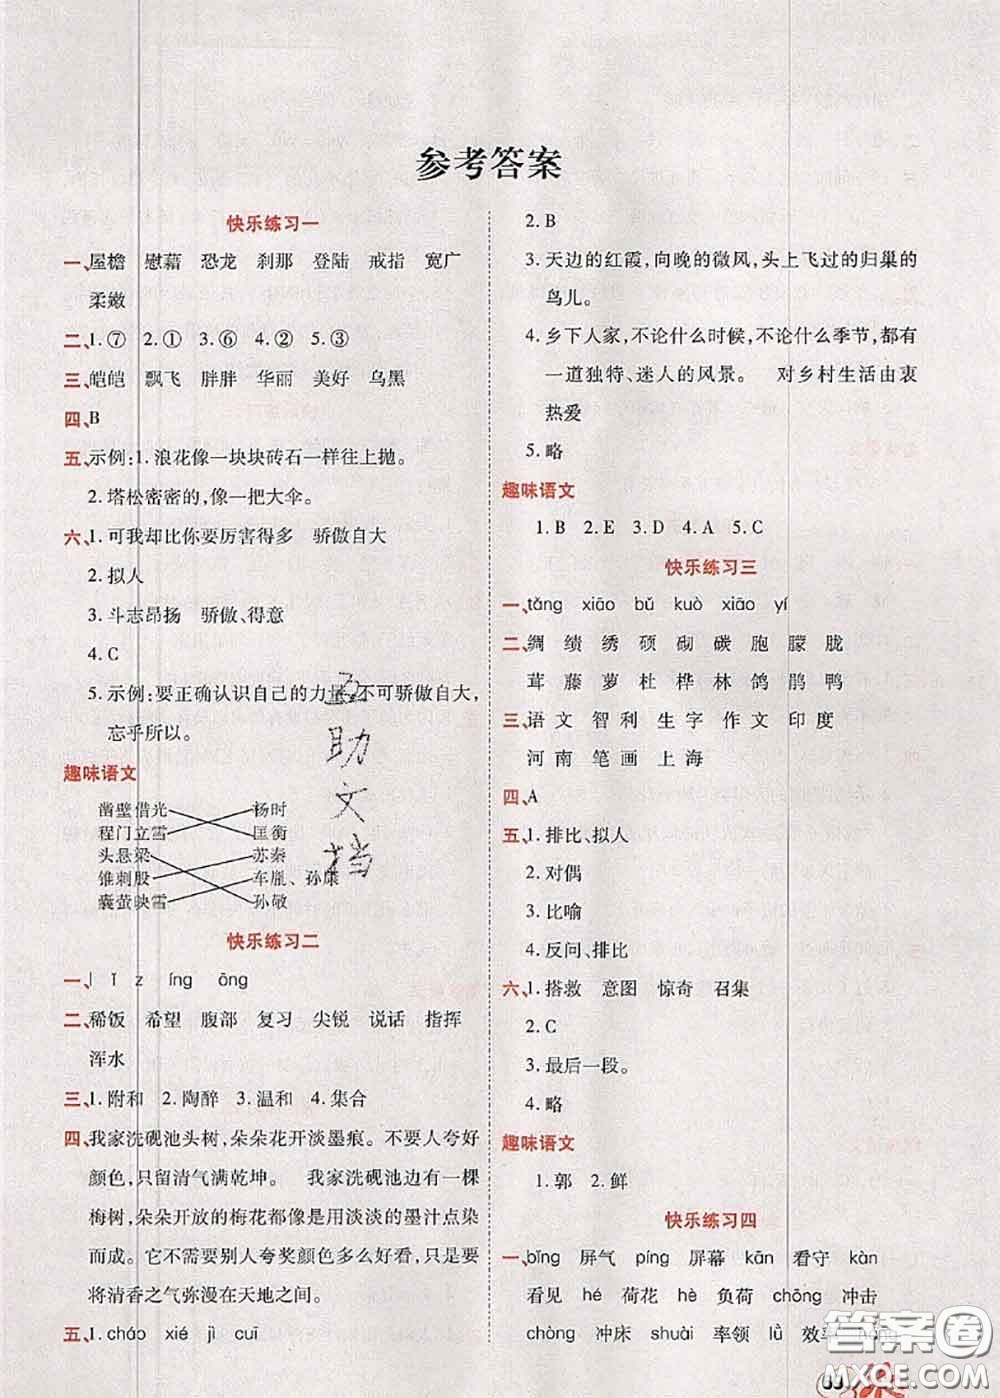 参考答案
快乐练习一
一、屋檐 慰藉 恐龙 刹那 登陆 戒指 宽广
柔嫩
二、1.⑦ 2.① 3.⑥ 4.② 5.③
三、皑皑 飘飞 胖胖 华丽 美好 乌黑
四、B
五、示例:1.浪花像一块块砖石一样往上抛。
2.塔松密密的,像一把大伞。
六、1.可我却比你要厉害得多 骄傲自大
2.拟人
3.斗志昂扬 骄傲、得意
4.C
5.示例:要正确认识自己的力量,不可骄傲自大,
忘乎所以。
趣味语文
凿壁借光 杨时
程门立雪 匡衡
头悬梁 苏秦
锥刺股 车胤、孙康
囊萤映雪 孙敬
快乐练习二
一、l ǐ z íng ōng
二、稀饭 希望 腹部 复习 尖锐 说话 指挥
浑水
三、1.附和 2.陶醉 3.温和 4.集合
四、我家洗砚池头树,朵朵花开淡墨痕。不要人夸好
颜色,只留清气满乾坤。 我家洗砚池边有一棵
梅树,朵朵开放的梅花都像是用淡淡的墨汁点染
而成。它不需要别人夸奖颜色多么好看,只是要
将清香之气弥漫在天地之间。
五、1.cháo xié jì cuī
2.B
3.天边的红霞,向晚的微风,头上飞过的归巢的
鸟儿。
4.乡下人家,不论什么时候,不论什么季节,都有
一道独特、迷人的风景。 对乡村生活由衷
热爱
5.略
趣味语文
1.B 2.E 3.D 4.A 5.C
快乐练习三
一、tǎng xiāo bǔ kuò xiāo yí
二、绸 绩 绣 硕 砌 碳 胞 朦 胧
茸 藤 萝 杜 桦 林 鸽 鹃 鸭
三、语文 智利 生字 作文 印度
河南 笔画 上海
四、A
五、1.排比、拟人
2.对偶
3.比喻
4.反问、排比
六、1.搭救 意图 惊奇 召集
2.C
3.最后一段。
4.略
趣味语文
1.郭 2.鲜
快乐练习四
一、bǐng 屏气 píng 屏幕 kān 看守 kàn
看见 hé 荷花 hè 负荷 chōng 冲击
chòng 冲床 shuài 率领 lǜ 效率
互助文档
答案圈
MXQE.COM